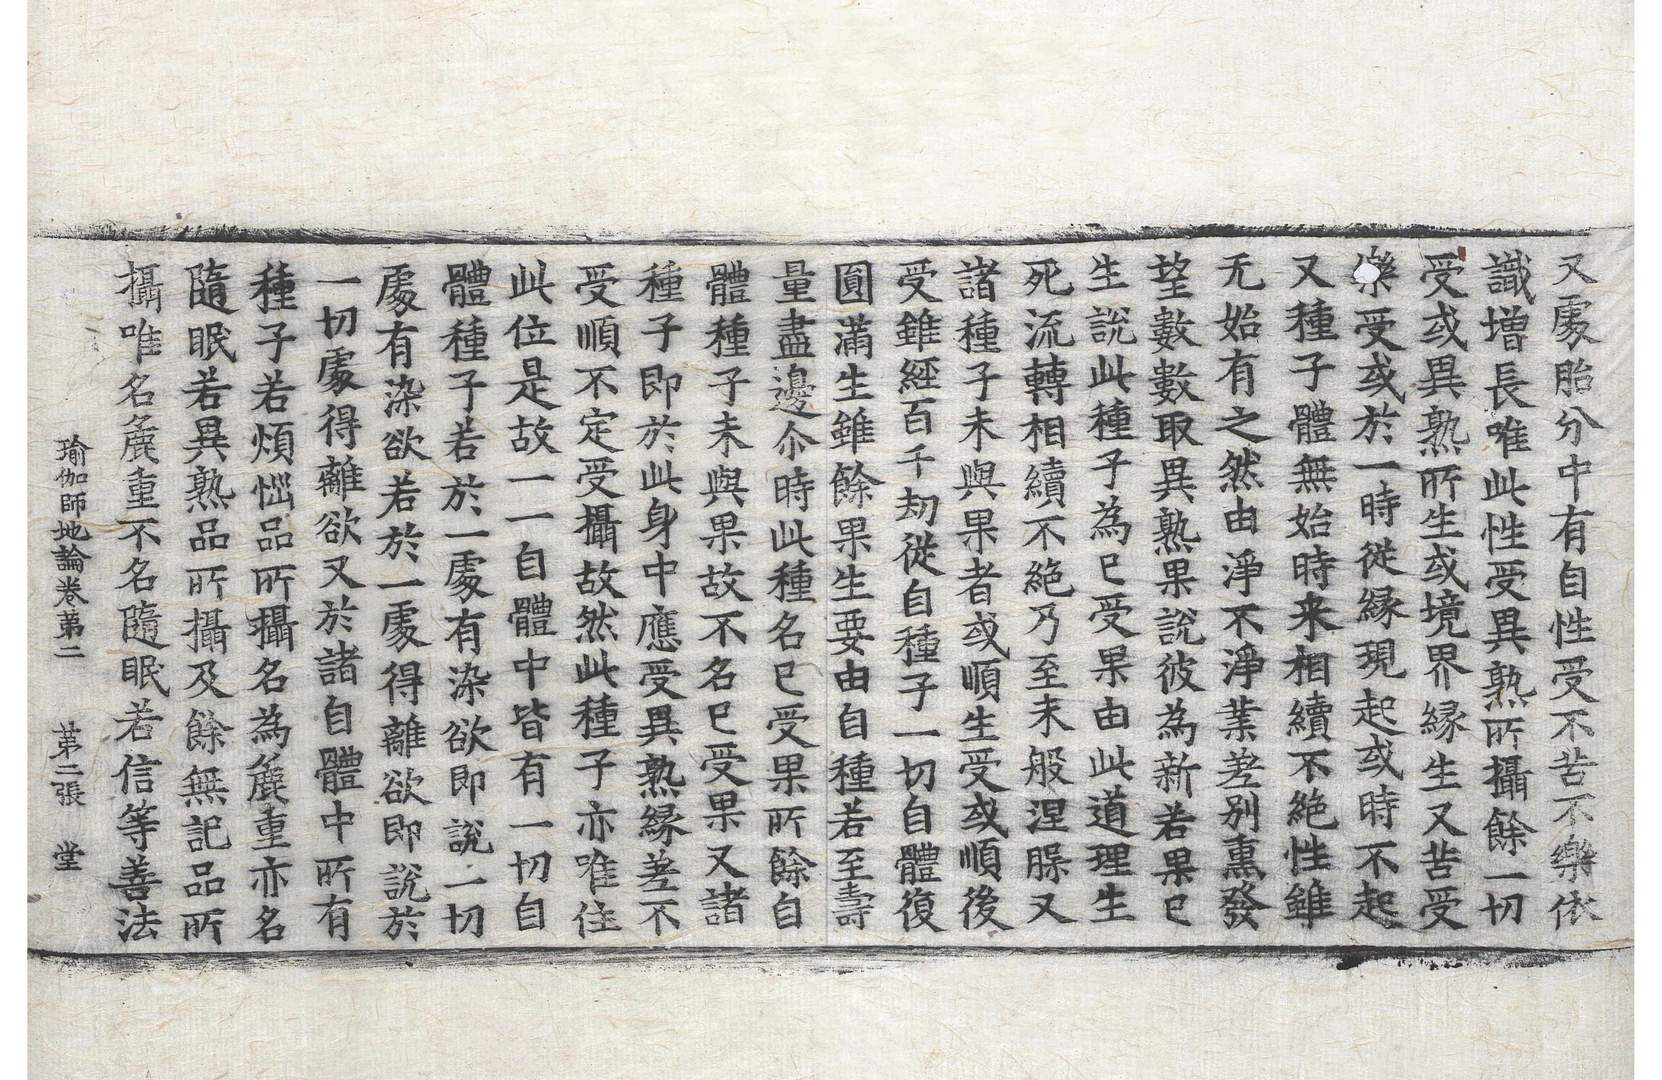 又處胎分中有自性受不苦不樂依
識增長唯此性受異熟所攝餘一切
受或異熟所生或境界緣生又苦受
樂受或於一時從緣現起或時不起
又種子體無始時来相續不絶性雖
无始有之然由淨不淨業差別熏發
望數數取異熟果說彼為新若果已
生說此種子為已受果由此道理生
死流轉相續不絶乃至未般涅槃又
諸種子未與果者或順生受或順後
受雖經百千劫從自種子一切自體復
圓滿生雖餘果生要由自種若至壽
量盡邊尒時此種名已受果所餘自
體種子未與果故不名已受果又諸
種子即於此身中應受異熟緣差不
受順不定受攝故然此種子亦唯住
此位是故一一自體中皆有一切自
體種子若於一處有染欲即說一切
處有染欲若於一處得離欲即說於
一切處得離欲又於諸自體中所有
種子若煩惱品所攝名為麁重亦名
隨眠若異熟品所攝及餘無記品所
攝唯名麁重不名隨眠若信等善法
瑜伽師地論卷苐二 苐二張 堂